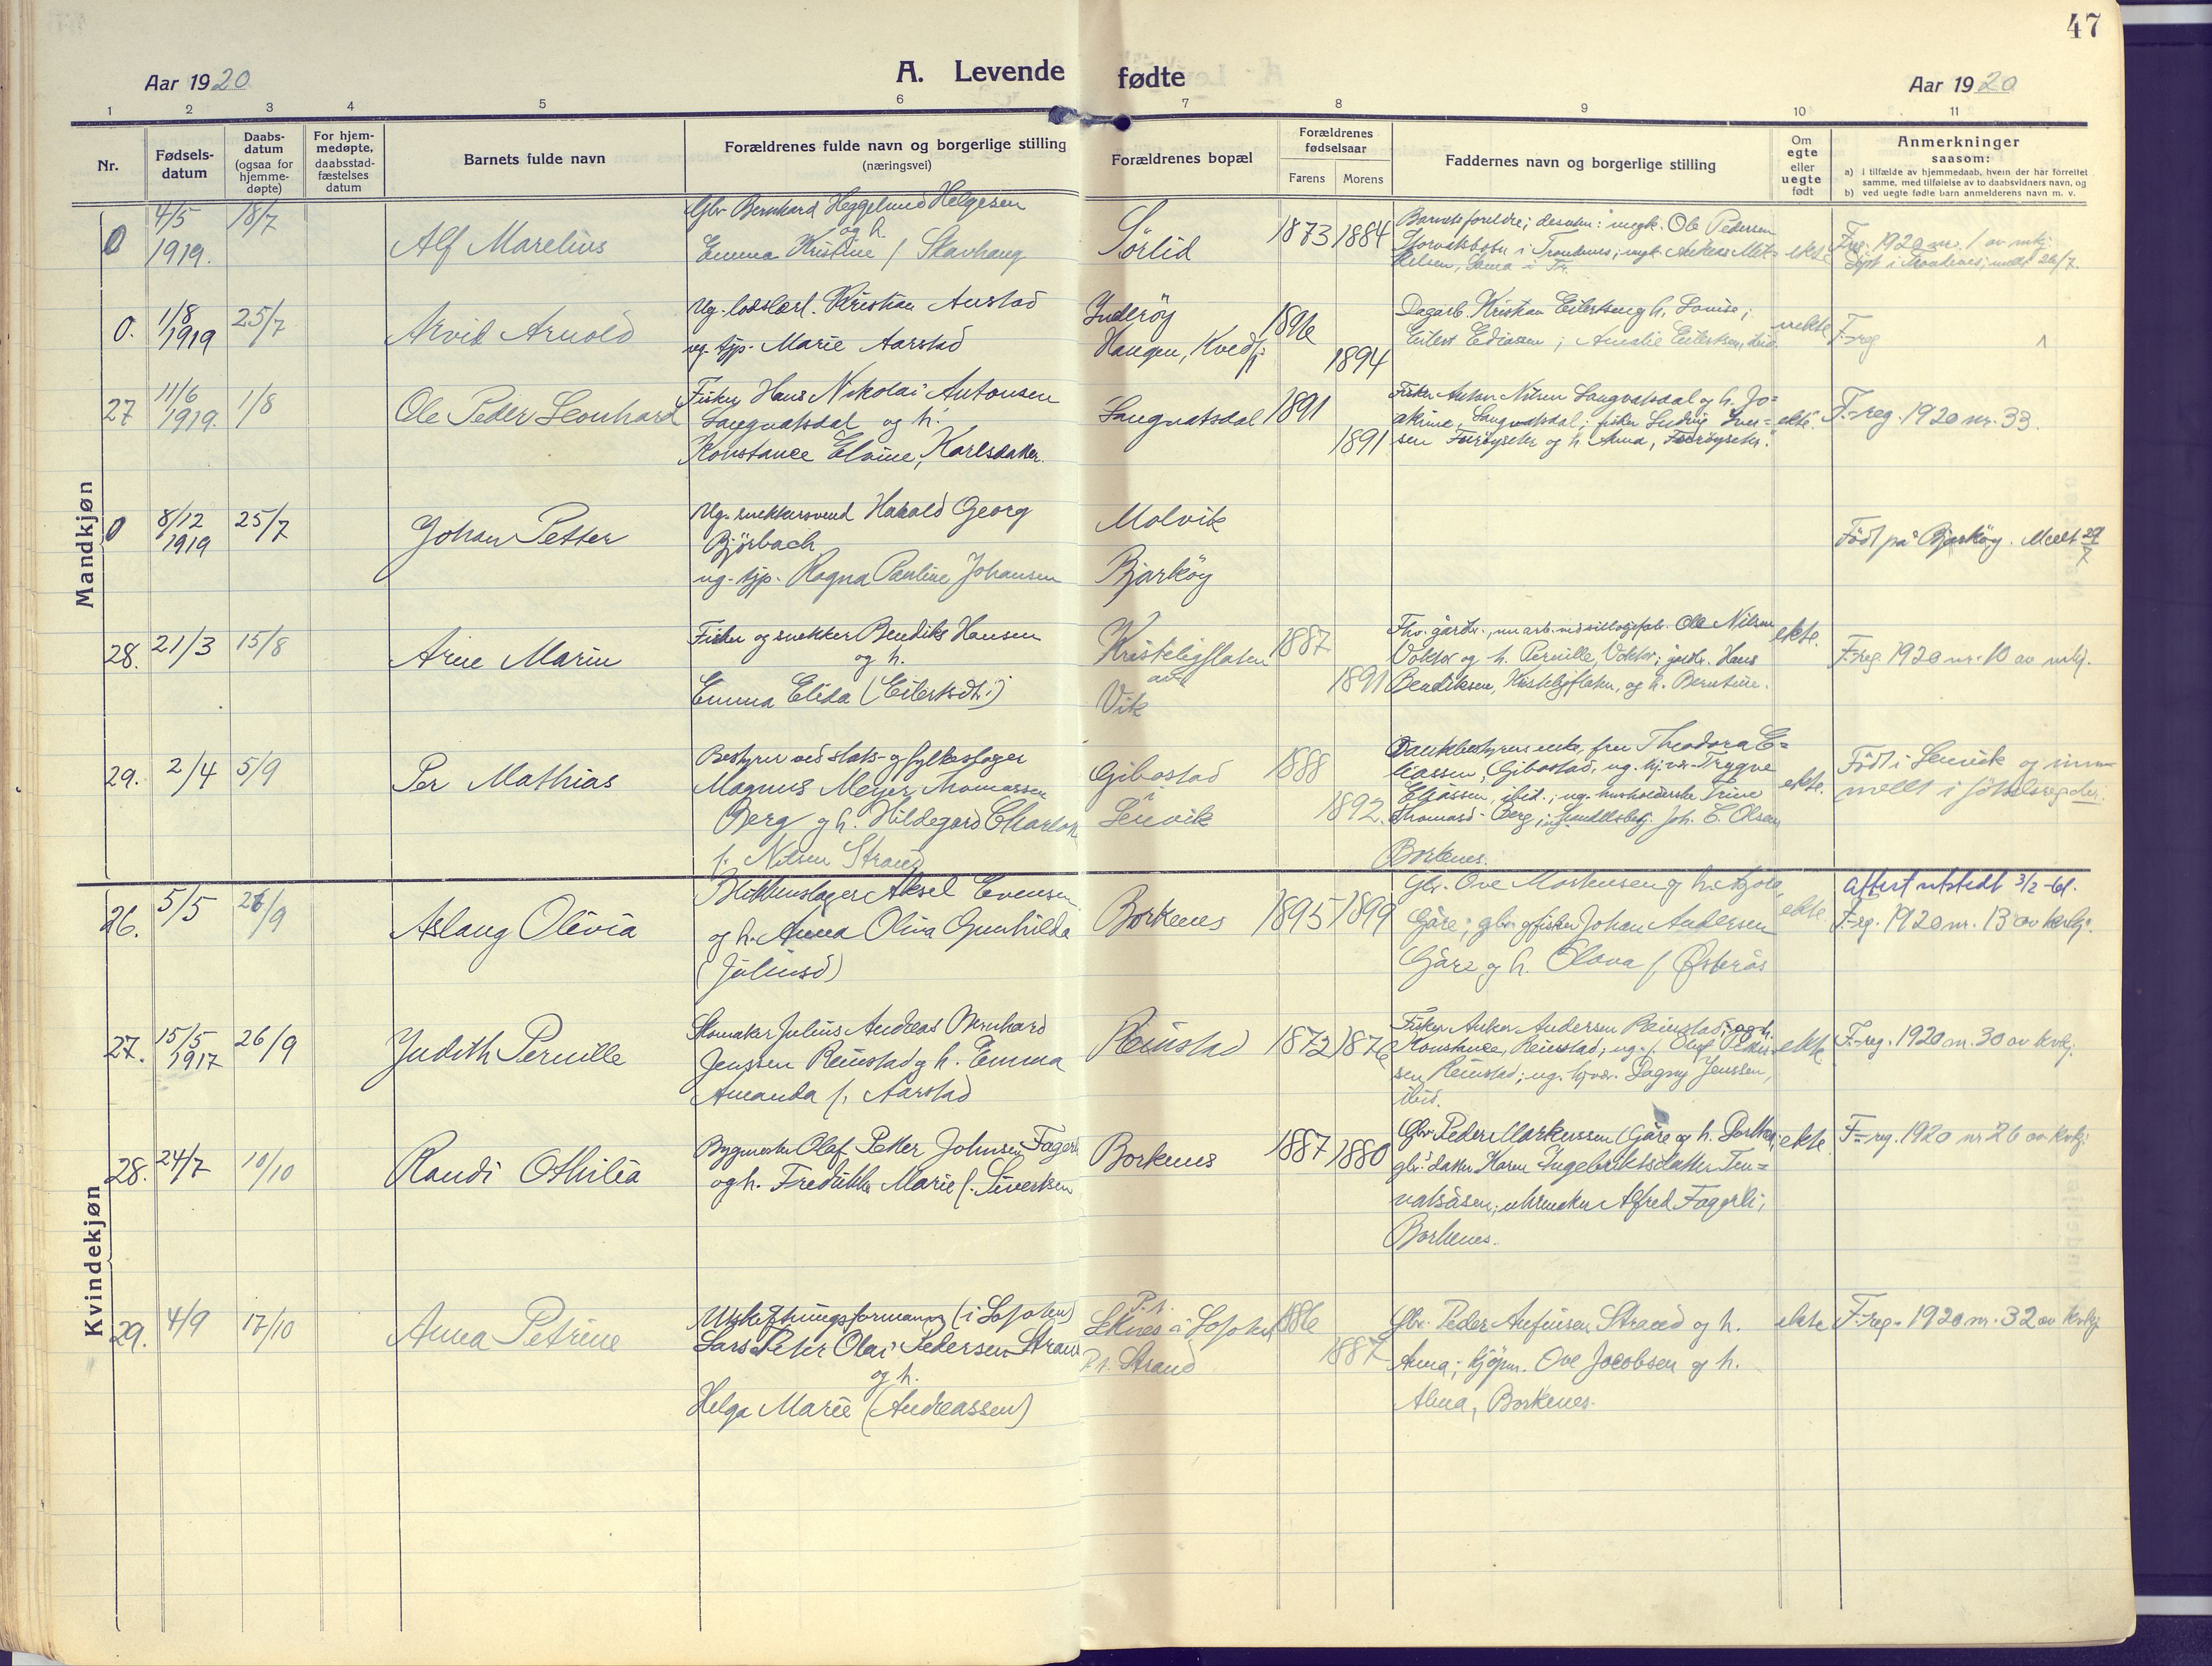 47
Aar 1920 A. Levende fødte Aar 1920
1 2 3 4 5 6 7 8 9 10 11
Nr.
Fødsels-
datum
Daabs-
datum
(ogsaa for
hjemme-
døpte)
For hjem-
medøpte,
daabsstad-
fæstelses
datum
Barnets fulde navn
Forældrenes fulde navn og borgerlige stilling
(næringsvei)
Forældrenes bopæl
Forældrenes
fødselsaar
Farens Morens
Faddernes navn og borgerlige stilling
Om
egte
eller
uegte
født
Anmerkninger
saasom:
a) i tilfælde av hjemmedaab, hvem der har forrettet
samme, med tilføielse av to daabsvidners navn, og
b) ved uegte fødte barn anmelderens navn m. v.
Mandkjøn
0 4/5 1919. 18/7
Alf Marelius
Gbr Bernhard Heggelund Helgesen
og h
Emma Kristine f. Stavhaug
Sørlid
1873 1884
Barnets foreldre; desuten: ungk. Ole Pedersen
Storvatsbotn i Trondenes; ungk. Andreas Mik-
kelsen, Sama i Tr.
ekte
F.reg. 1920 nr. 1 av mkj.
Døpt i Trondenes; meldt 26/7.
0. 1/8 1919 25/7
Arvid Arnold
Ug. losslærl. Kristian Austad
ug. tjp. Marie Aarstad
Inderøy
Haugen, Kvedfj
1896
1894
Dagarb. Kristian Eilertsen g h. Lovise;
Eilert Ediassen; Amalie Eilertsen, ibid.
uekte
F-reg
27 11/6 1919. 1/8
Ole Peder Leonhard
Fisker Hans Nikolai Antonsen
Langvatsdal og h.
Konstanse Elvine, Karlsdatter.
Langvatsdal
1891
1891
Fisker Anton Nilsen Langvatsdal og h. Jo-
akime, Langvatsdal; fisker Ludvig Iver-
sen Forøyseter og h. Anna, Forøyseter.
ekte.
F.-reg. 1920 nr. 33.
0 8/12 1919 25/7
Johan Petter
Ug. snekkersvend Harald Georg
Bjørbach
ug. tjp. Ragna Pauline Johansen
Molvik
Bjarkøy
Født på Bjarkøy. Meldt 29/7
28. 21/3 15/8
Arne Marin
Fisker og snekker Bendiks Hansen
og h.
Emma Elida (Eilertsdt.)
Kristeligflaten
av
Vik
1887
1891
Fhv. gårdbr., nu arb. ved sildoljefabr. Ole Nilsen
Voktor og h. Pernille, Voktor; gårdbr. Hans
Bendiksen, Kristeligflaten, og h. Berntine.
ekte.
F.-reg. 1920 nr. 10 av mkj.
29. 2/4 5/9
Per Mathias
Bestyrer ved stats- og fylkeslager
Magnus Meyer Thomassen
Berg g h. Hildegard Charlott
f. Nilsen Strand
Gibostad
i
Lenvik
1888
1892.
Bankbestyrers enke, fru Theodora E-
liassen, Gibostad, ug. hj.vær. Trygve
Eliassen, ibid.; ug. husholderske Trine
Thomass. Berg; handelsbetj. Joh. C. Olsen
Borkenes.
ekte.
Født i Lenvik og inn-
meldt i fødselsreg der.
Kvindekjøn
26. 5/5 26/9
Aslaug Olivia
Blikkenslager Aksel Evensen
og h. Anna Oliva Gunhilda
(Juliusd)
Borkenes
1895 1899
Gbr. Ove Mortensen g h.
Gåre; gbr. g fisker Johan Andersen
Gåre g h. Olava f. Østerås
ekte.
Attest utstedt 3/2-61.
F.-reg. 1920 nr. 13 av kvkj.
27. 15/5 1917 26/9
Judith Pernille
Skomaker Julius Andreas Bernhard
Jenssen Reinstad g h. Emma
Amanda f. Aarstad
Reinstad
1872 1876
Fisker Anker Andersen Reinstad og h.
Konstanse, Reinstad; ug. f. Oluf Peder-
sen Reinstad; ug. hj.vær. Dagny Jenssen,
ibid.
ekte
F.-reg. 1920 nr. 30 av kvkj.
28. 24/7 10/10
Randi Othilia
Bygmester Olaf Petter Johnsen Fagerli
og h. Fredrikke Marie f. Sivertsen
Borkenes
1887 1880
Gbr. Peder Markussen Gåre og h. Dorthea;
gbr.'datter Karen Ingebriktsdatter Ten-
vatsåsen; uhrmaker Alfred Fagerli;
Borkenes.
ekte
F-reg. 1920 nr 26 av kvkj
29. 4/9 17/10
Anna Petrine
Utskiftningsformann (i Lofoten)
Lars Peter Olai Pedersen Strand
og h.
Helga Marie (Andreassen)
P.t.
Leknes i Lofoten
P.t. Strand
1886
1887
Gbr. Peder Anfinsen Strand og h.
Anna; kjøpm. Ove Jacobsen g h.
Alma, Borkenes.
ekte
F-reg. 1920 nr. 32 av kvkj